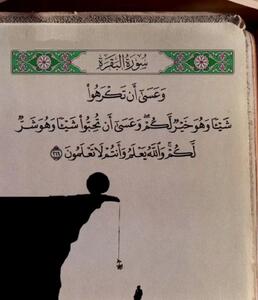 سُورَةُ الْبَقَرَةِ
وَعَسَىٰٓ أَن تَكْرَهُوا۟
شَيْـًٔا وَهُوَ خَيْرٌ لَّكُمْ ۖ وَعَسَىٰٓ أَن تُحِبُّوا۟ شَيْـًٔا وَهُوَ شَرٌّ
لَّكُمْ ۗ وَٱللَّهُ يَعْلَمُ وَأَنتُمْ لَا تَعْلَمُونَ ٢١٦